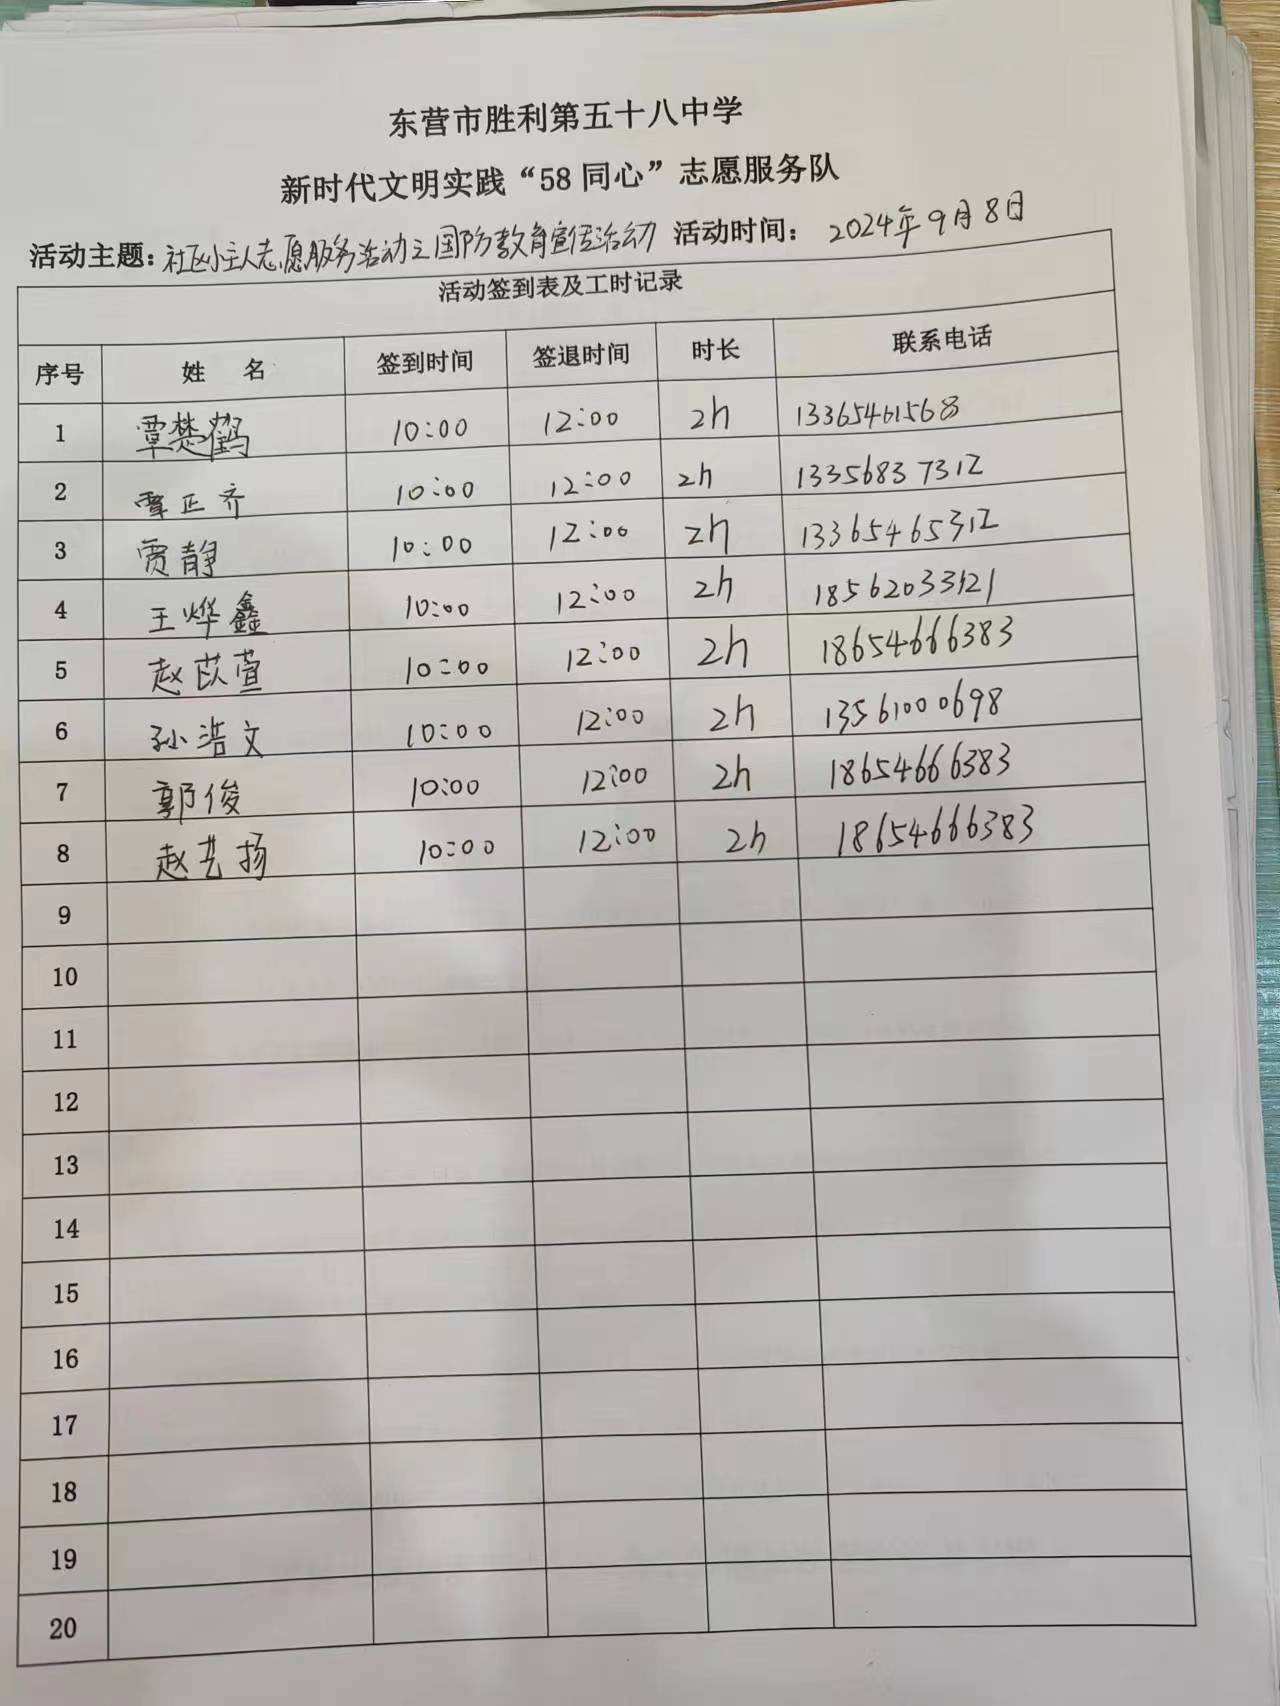 东营市胜利第五十八中学
新时代文明实践“58同心”志愿服务队
活动主题：社区小主人志愿服务活动之国防教育宣传活动 活动时间：2024年9月8日
活动签到表及工时记录
序号 姓 名 签到时间 签退时间 时长 联系电话
1 覃楚鹤 10:00 12:00 2h 13365461568
2 覃正齐 10:00 12:00 2h 13356837312
3 贾静 10:00 12:00 2h 13365465312
4 王烨鑫 10:00 12:00 2h 18562033121
5 赵苡萱 10:00 12:00 2h 18654666383
6 孙浩文 10:00 12:00 2h 13561000698
7 郭俊 10:00 12:00 2h 18654666383
8 赵艺扬 10:00 12:00 2h 18654666383
9
10
11
12
13
14
15
16
17
18
19
20